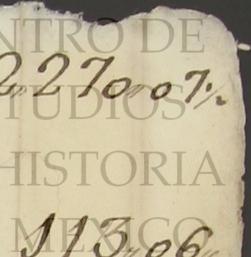 NTRO DE
2,,270,,07½
TUDIOS
HISTORIA
MEXICO
113,,06,,